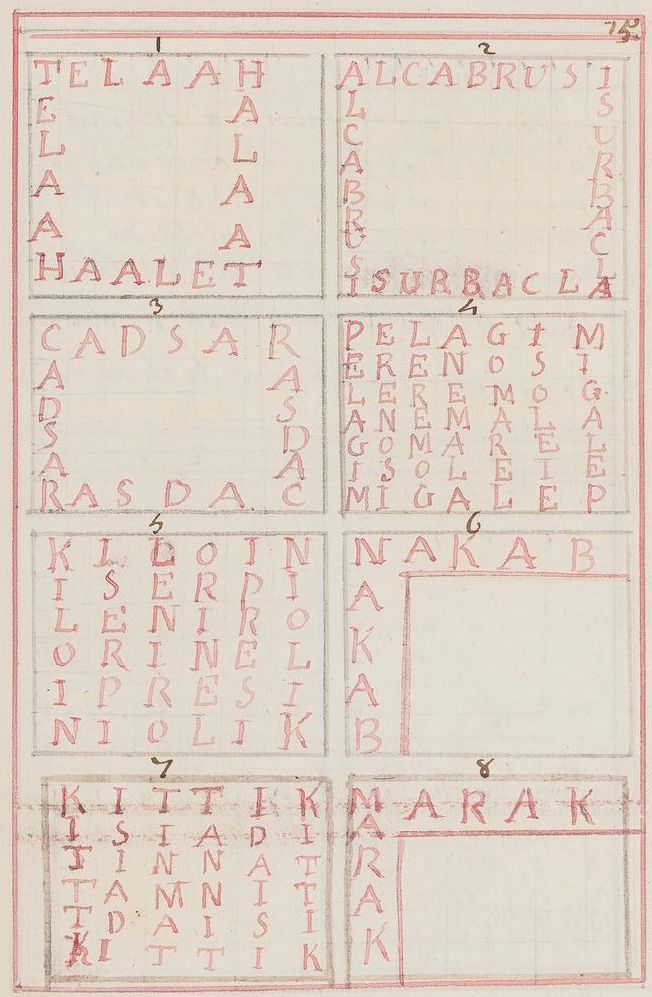 75.
1
TELAAH
E A
L L
A A
A A
HAALET
2
ALCABRUSI
L S
C U
A R
B B
R A
U C
S L
ISURBACLA
3
CADSAR
A A
D S
S D
A A
RASDAC
4
PELAGIM
ERENOSI
LEREMOG
ANEMALA
GOMAREL
ISOLEIE
MIGALEP
5
KILOIN
ISERPI
LENIRO
ORINEL
IPRESI
NIOLIK
6
NAKAB
A
K
A
B
7
KITTIK
ISIADI
TINNAT
TAMNIT
TDAISI
KITTIK
8
MARAK
A
R
A
K